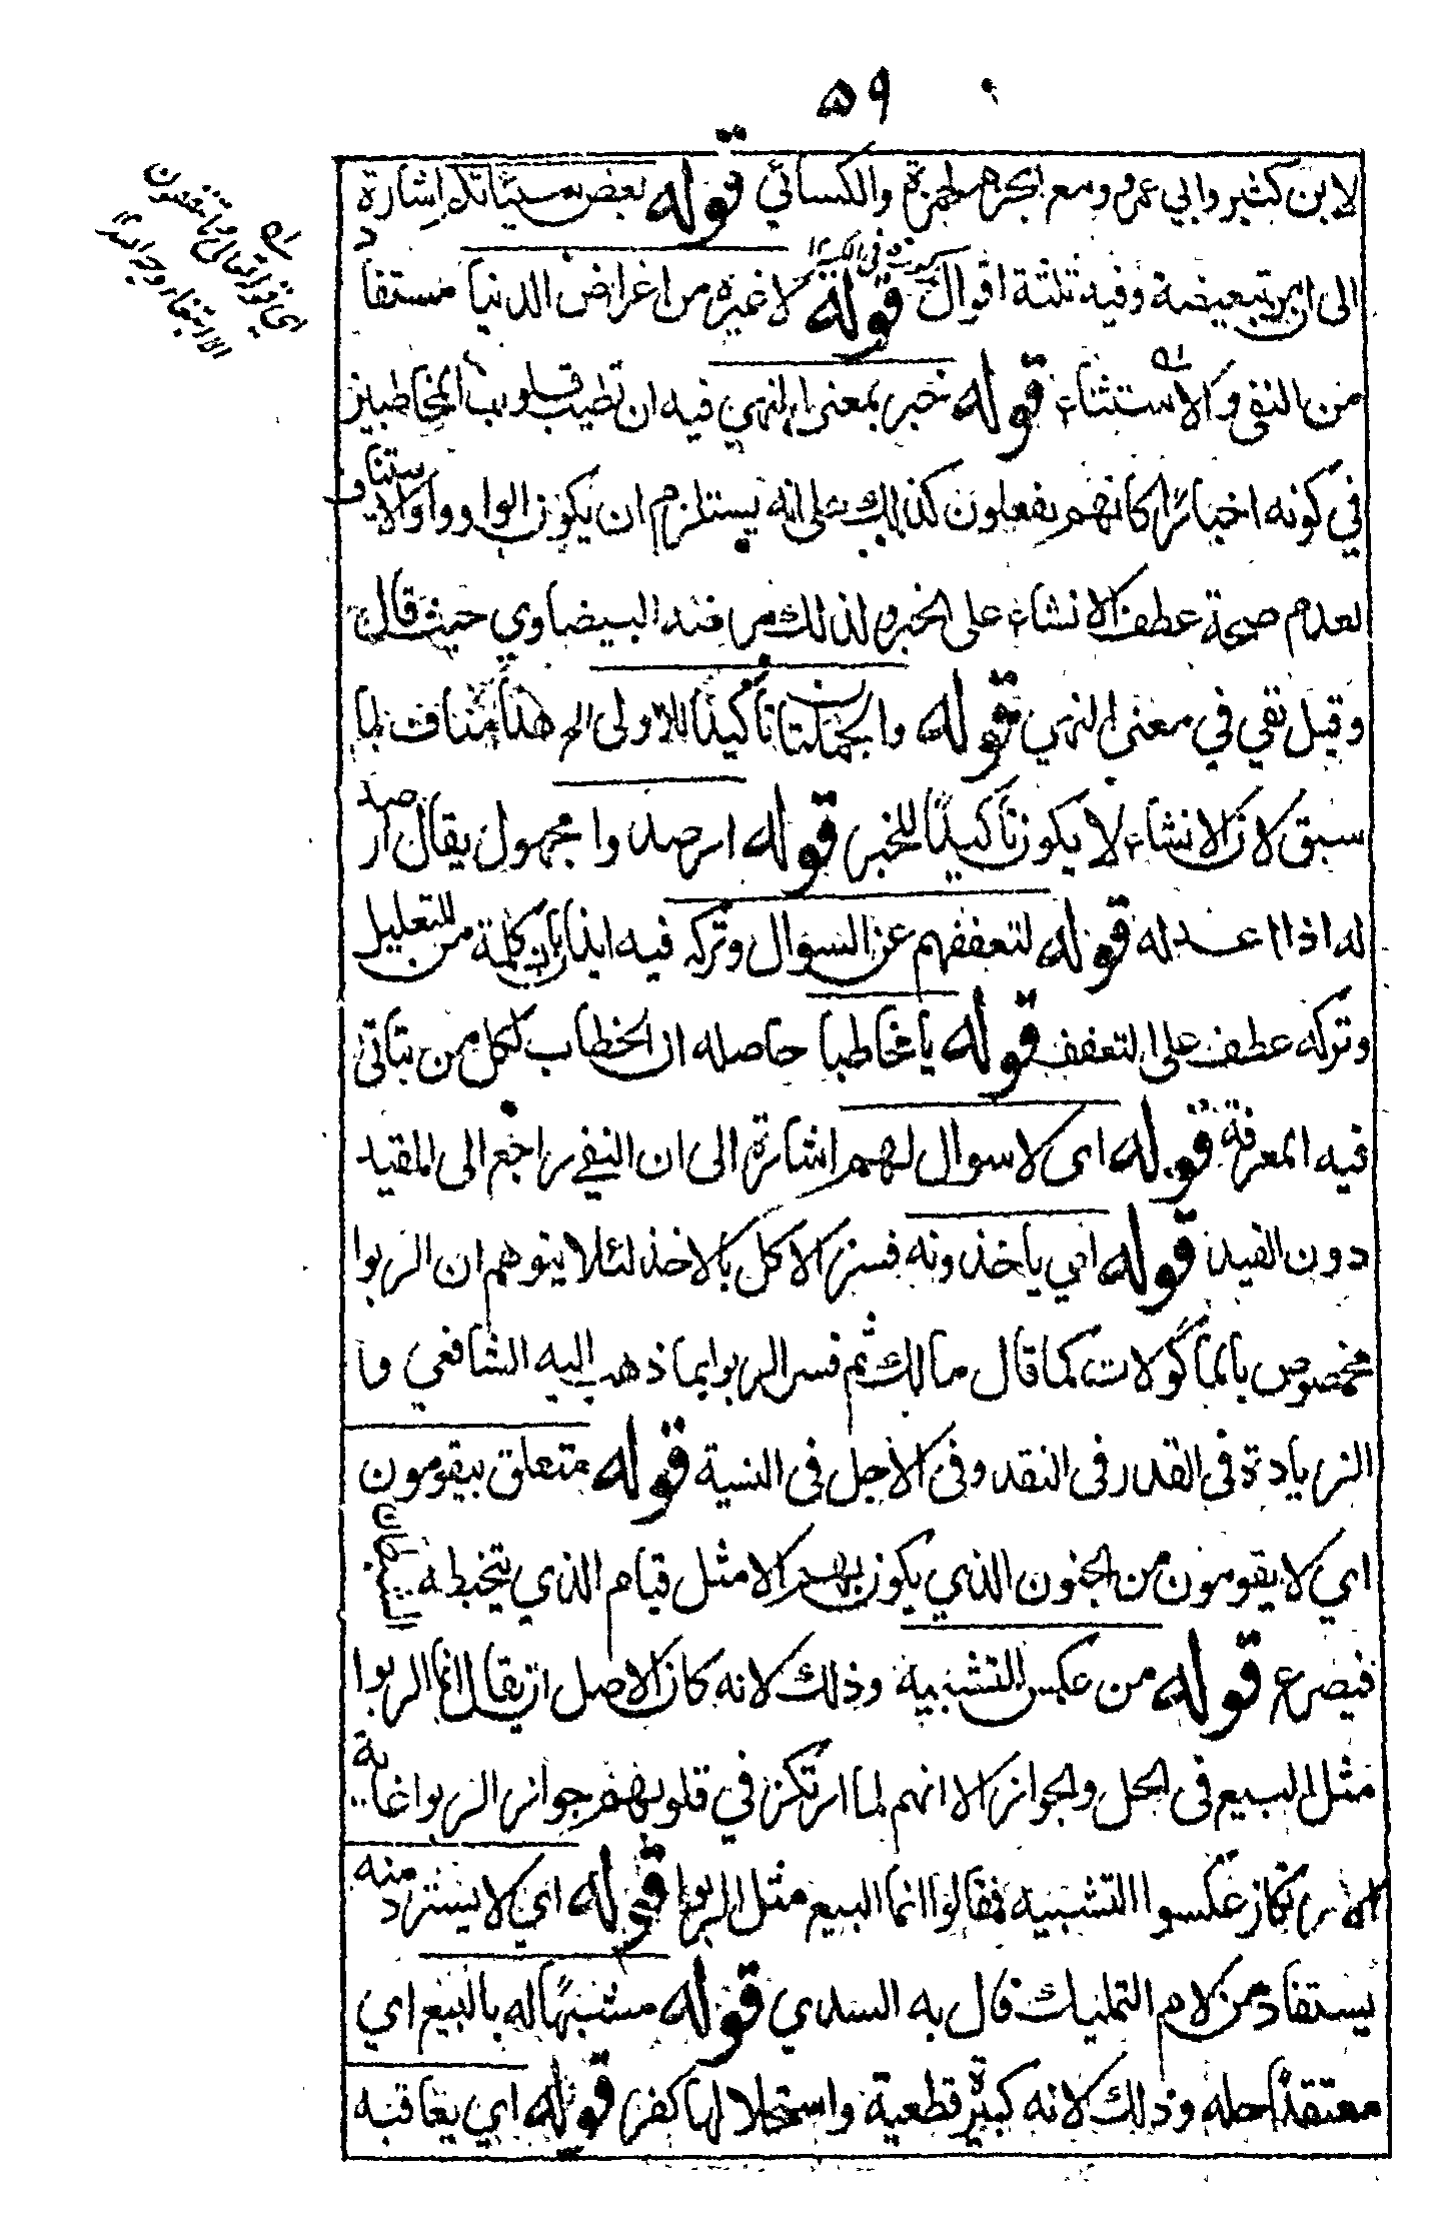 ٥٩
لابن كثير وابي عمرو ومع الجزم لحمزة والكسائي قوله بعض سيئاتكم اشارة
الى ان من تبعيضية وفيه ثلثة اقوال قوله لا غيره من اغراض الدنيا مستفاد
من النفي والاستثناء قوله خبر بمعنى النهي فيه ان تطيب قلوب المخاطبين
في كونه اخبارًا كانهم يفعلون كذلك على انه يستلزم ان يكون الواو واو الاستيناف
لعدم صحة عطف الانشاء على الخبر ولذلك مرضه البيضاوي حيث قال
وقيل نفي في معنى النهي قوله والجملتان تأكيدًا للاولى الخ هذا مناف لما
سبق لان الانشاء لا يكون تأكيدًا للخبر قوله ارصدوا مجهول يقال ارصد
له اذا اعد له قوله لتعففهم عن السوال وتركه فيه ايذان بان كلمة من للتعليل
وتركه عطف على التعفف قوله يا مخاطبا حاصله ان الخطاب لكل من يتأتى
فيه المعرفة قوله اى لا سوال لهم اشارة الى ان النفي راجع الى المقيد
دون القيد قوله اي ياخذونه فسر الاكل بالاخذ لئلا يتوهم ان الربوا
مخصوص بالمأكولات كما قال مالك ثم فسر الربوا بما ذهب اليه الشافعي و
الزيادة في القدر في النقد وفي الاجل في النسية قوله متعلق بيقومون
اي لا يقومون من الجنون الذي يكون بهم الا مثل قيام الذي يتخبطه الشيطان
فيصرع قوله من عكس التشبيه وذلك لانه كان الاصل ان يقال انما الربوا
مثل البيع في الحل والجواز الا انهم لما ارتكز في قلوبهم جواز الربوا غاية
الارتكاز عكسوا التشبيه فقالوا انما البيع مثل الربوا قوله اي لا يسترد منه
يستفاد من لام التمليك قال به السدي قوله مشبهًا له بالبيع اي
معتقدًا حله وذلك لانه كبيرة قطعية واستحلالها كفر قوله اي يعاقبه
اي قوله تعالى وما تنفقون
الا ابتغاء وجه الله